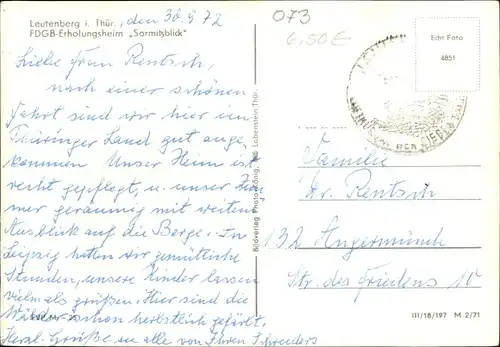 Leutenberg i. Thür.
FDGB-Erholungsheim „Sormitzblick"
den 30.9.72
Liebe Frau Rentsch,
nach einer schönen
Fahrt sind wir hier im
Thüringer Land gut ange-
kommen. Unser Heim ist
recht gepflegt, u. unser Zim-
mer geräumig mit weitem
Ausblick auf die Berge. In
Leipzig hatten wir gemütliche
Stunden, unsere Kinder lassen
vielmals grüßen. Hier sind die
Wälder schon herbstlich gefärbt.
Herzl. Grüße an alle von Ihren Schreuders
Bildverlag Photo-König, Lobenstein/Thür.
073
6,50€
Echt Foto
4851
Familie
Dr. Rentsch
132 Angermünde
Str. des Friedens 10
III/18/197 M 2/71